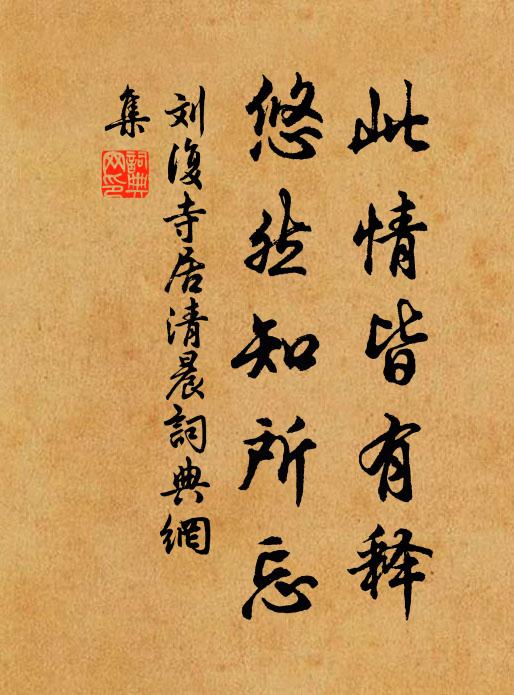 此情皆有释
悠然知所忘
刘復寺居清晨詞典網
集
詞典
网印